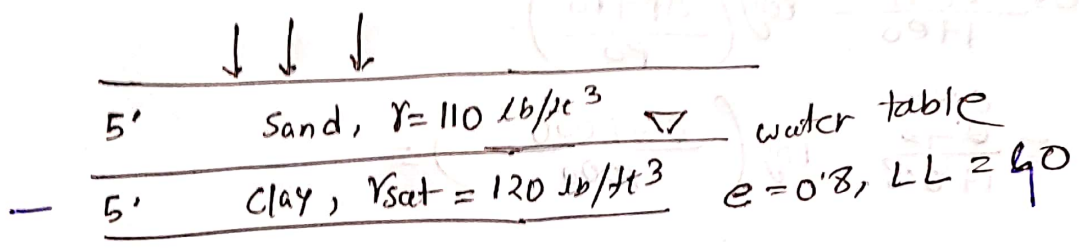 5' Sand, γ = 110 lb/ft³ ▽ water table
5' Clay, γsat = 120 lb/ft³ e = 0.8, LL = 40